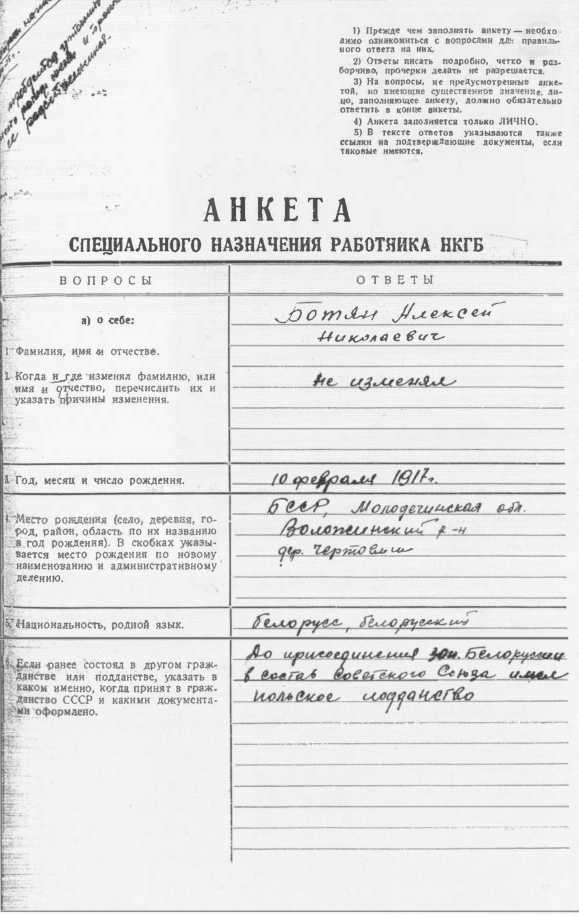 1) Прежде чем заполнять анкету — необхо-
димо ознакомиться с вопросами для правиль-
ного ответа на них.
2) Ответы писать подробно, четко и раз-
борчиво, прочерки делать не разрешается.
3) На вопросы, не предусмотренные анке-
той, но имеющие существенное значение, ли-
цо, заполняющее анкету, должно обязательно
ответить в конце анкеты.
4) Анкета заполняется только ЛИЧНО.
5) В тексте ответов указываются также
ссылки на подтверждающие документы, если
таковые имеются.
АНКЕТА
СПЕЦИАЛЬНОГО НАЗНАЧЕНИЯ РАБОТНИКА НКГБ
ВОПРОСЫ
ОТВЕТЫ
а) о себе:
1. Фамилия, имя и отчестве.
Ботян Алексей
Николаевич
2. Когда и где изменял фамилию, или
имя и отчество, перечислить их и
указать причины изменения.
Не изменял
3. Год, месяц и число рождения.
10 февраля 1917г.
4. Место рождения (село, деревня, го-
род, район, область по их названию
в год рождения). В скобках указы-
вается место рождения по новому
наименованию и административному
делению.
БССР, Молодечинская обл.
Воложинский р-н
дер. Чертовичи
5. Национальность, родной язык.
белорусс, белорусский
6. Если ранее состоял в другом граж-
данстве или подданстве, указать в
каком именно, когда принят в граж-
данство СССР и какими документа-
ми оформлено.
До присоединения зап. Белоруссии
в состав Советского Союза имел
польское подданство